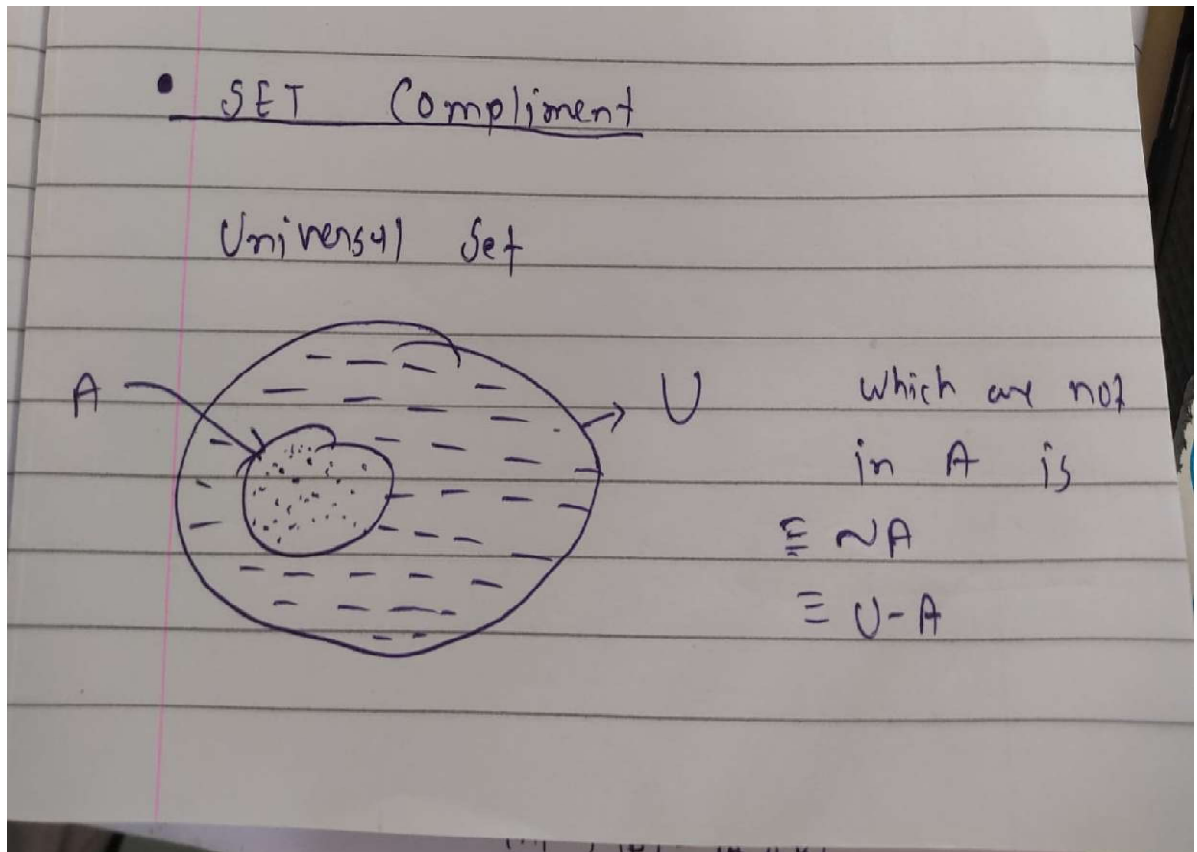 • SET Compliment
Universal Set
A
U
which are not
in A is
≡ ~A
≡ U-A